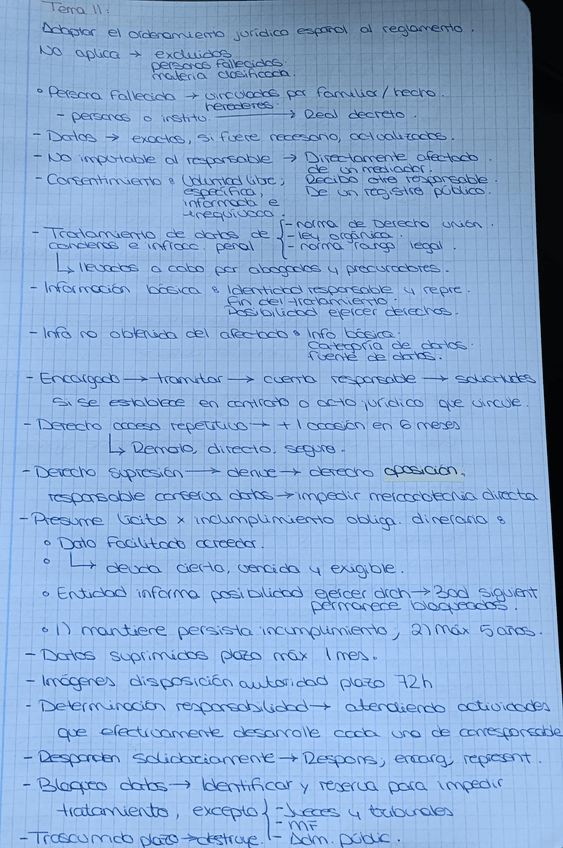 Tema 11:
Adaptar el ordenamiento jurídico español al reglamento.
No aplica → excluidos
personas fallecidas
materia clasificada.
◦ Persona fallecida → vinculados por familiar / hecho.
herederos.
- personas o institu. → Real decreto.
- Datos → exactos, si fuere necesario, actualizados.
- No imputable al responsable → Directamente afectado.
de un mediador.
- Consentimiento: Voluntad libre; Recibido otro responsable.
específica, De un registro público.
informada e
inequívoca.
- Tratamiento de datos de { - norma de Derecho unión.
condenas e infracc. penal - ley orgánica.
- norma rango legal.
↳ llevados a cabo por abogados y procuradores.
- Información básica: Identidad responsable y repre.
fin del tratamiento.
Posibilidad ejercer derechos.
- Info no obtenida del afectado: Info básica.
Categoría de datos.
fuente de datos.
- Encargado → tramitar → cuenta responsable → solicitudes
si se establece en contrato o acto jurídico que vincule.
- Derecho acceso repetitivo → + 1 ocasión en 6 meses
↳ Remoto, directo, seguro.
- Derecho supresión → derive → derecho oposición.
responsable conserva datos → impedir mercadotecnia directa
- Presume lícito x incumplimiento obliga. dineraria:
◦ Dato facilitado acreedor.
◦ ↳ deuda cierta, vencida y exigible.
◦ Entidad informa posibilidad ejercer drch → 30d siguient
permanece bloqueados.
◦ 1) mantiene persista incumplimiento, 2) máx 5 años.
- Datos suprimidos plazo máx 1 mes.
- Imágenes disposición autoridad plazo 72h
- Determinación responsabilidad → atendiendo actividades
que efectivamente desarrolle cada uno de corresponsable
- Responden solidariamente → Respons, encarg, represent.
- Bloqueo datos → Identificar y reserva para impedir
tratamiento, excepto { - Jueces y tribunales
- MF
- Trascurrido plazo → destruye. - Adm. públic.